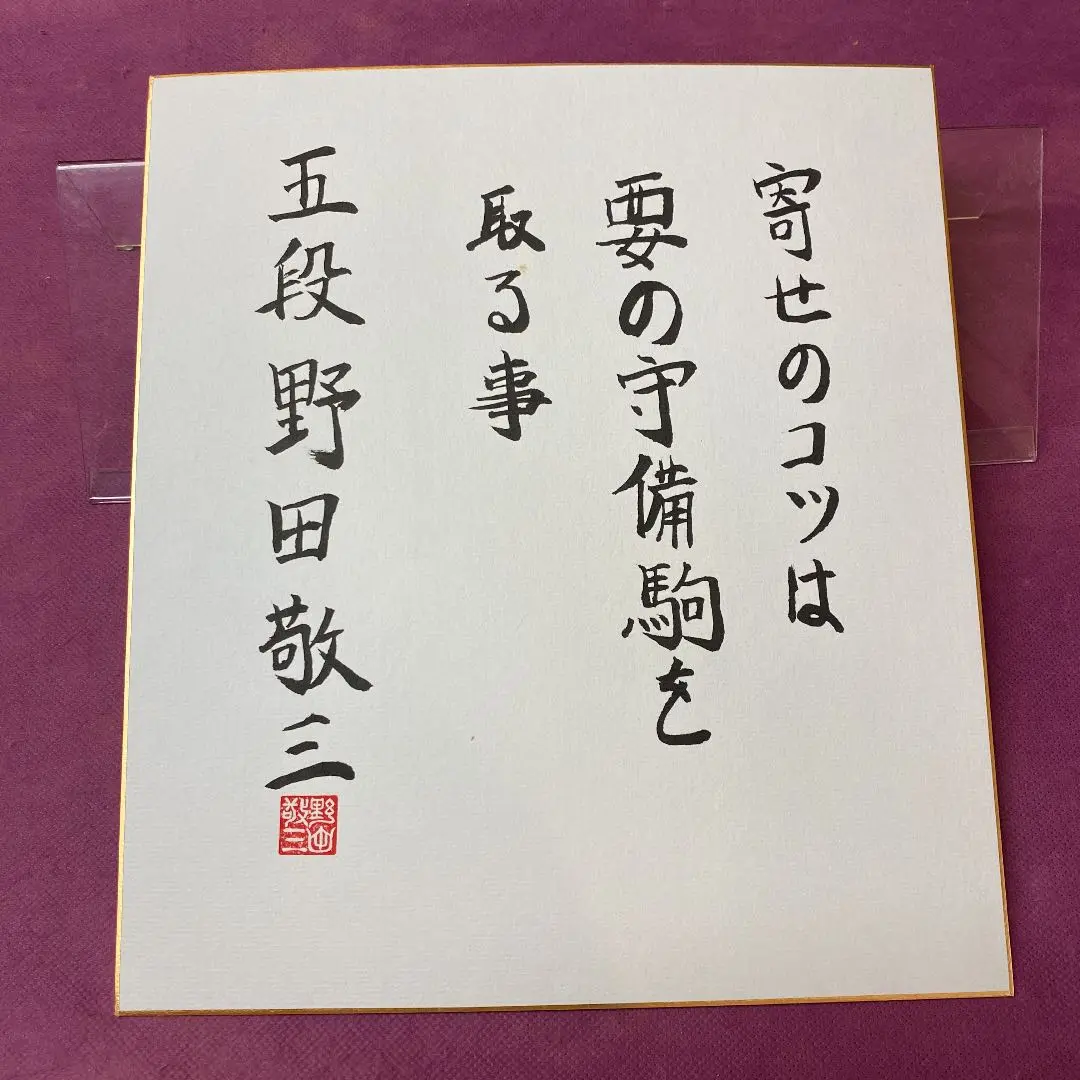 寄せのコツは
要の守備駒を
取る事
五段 野田敬三
野田
敬三